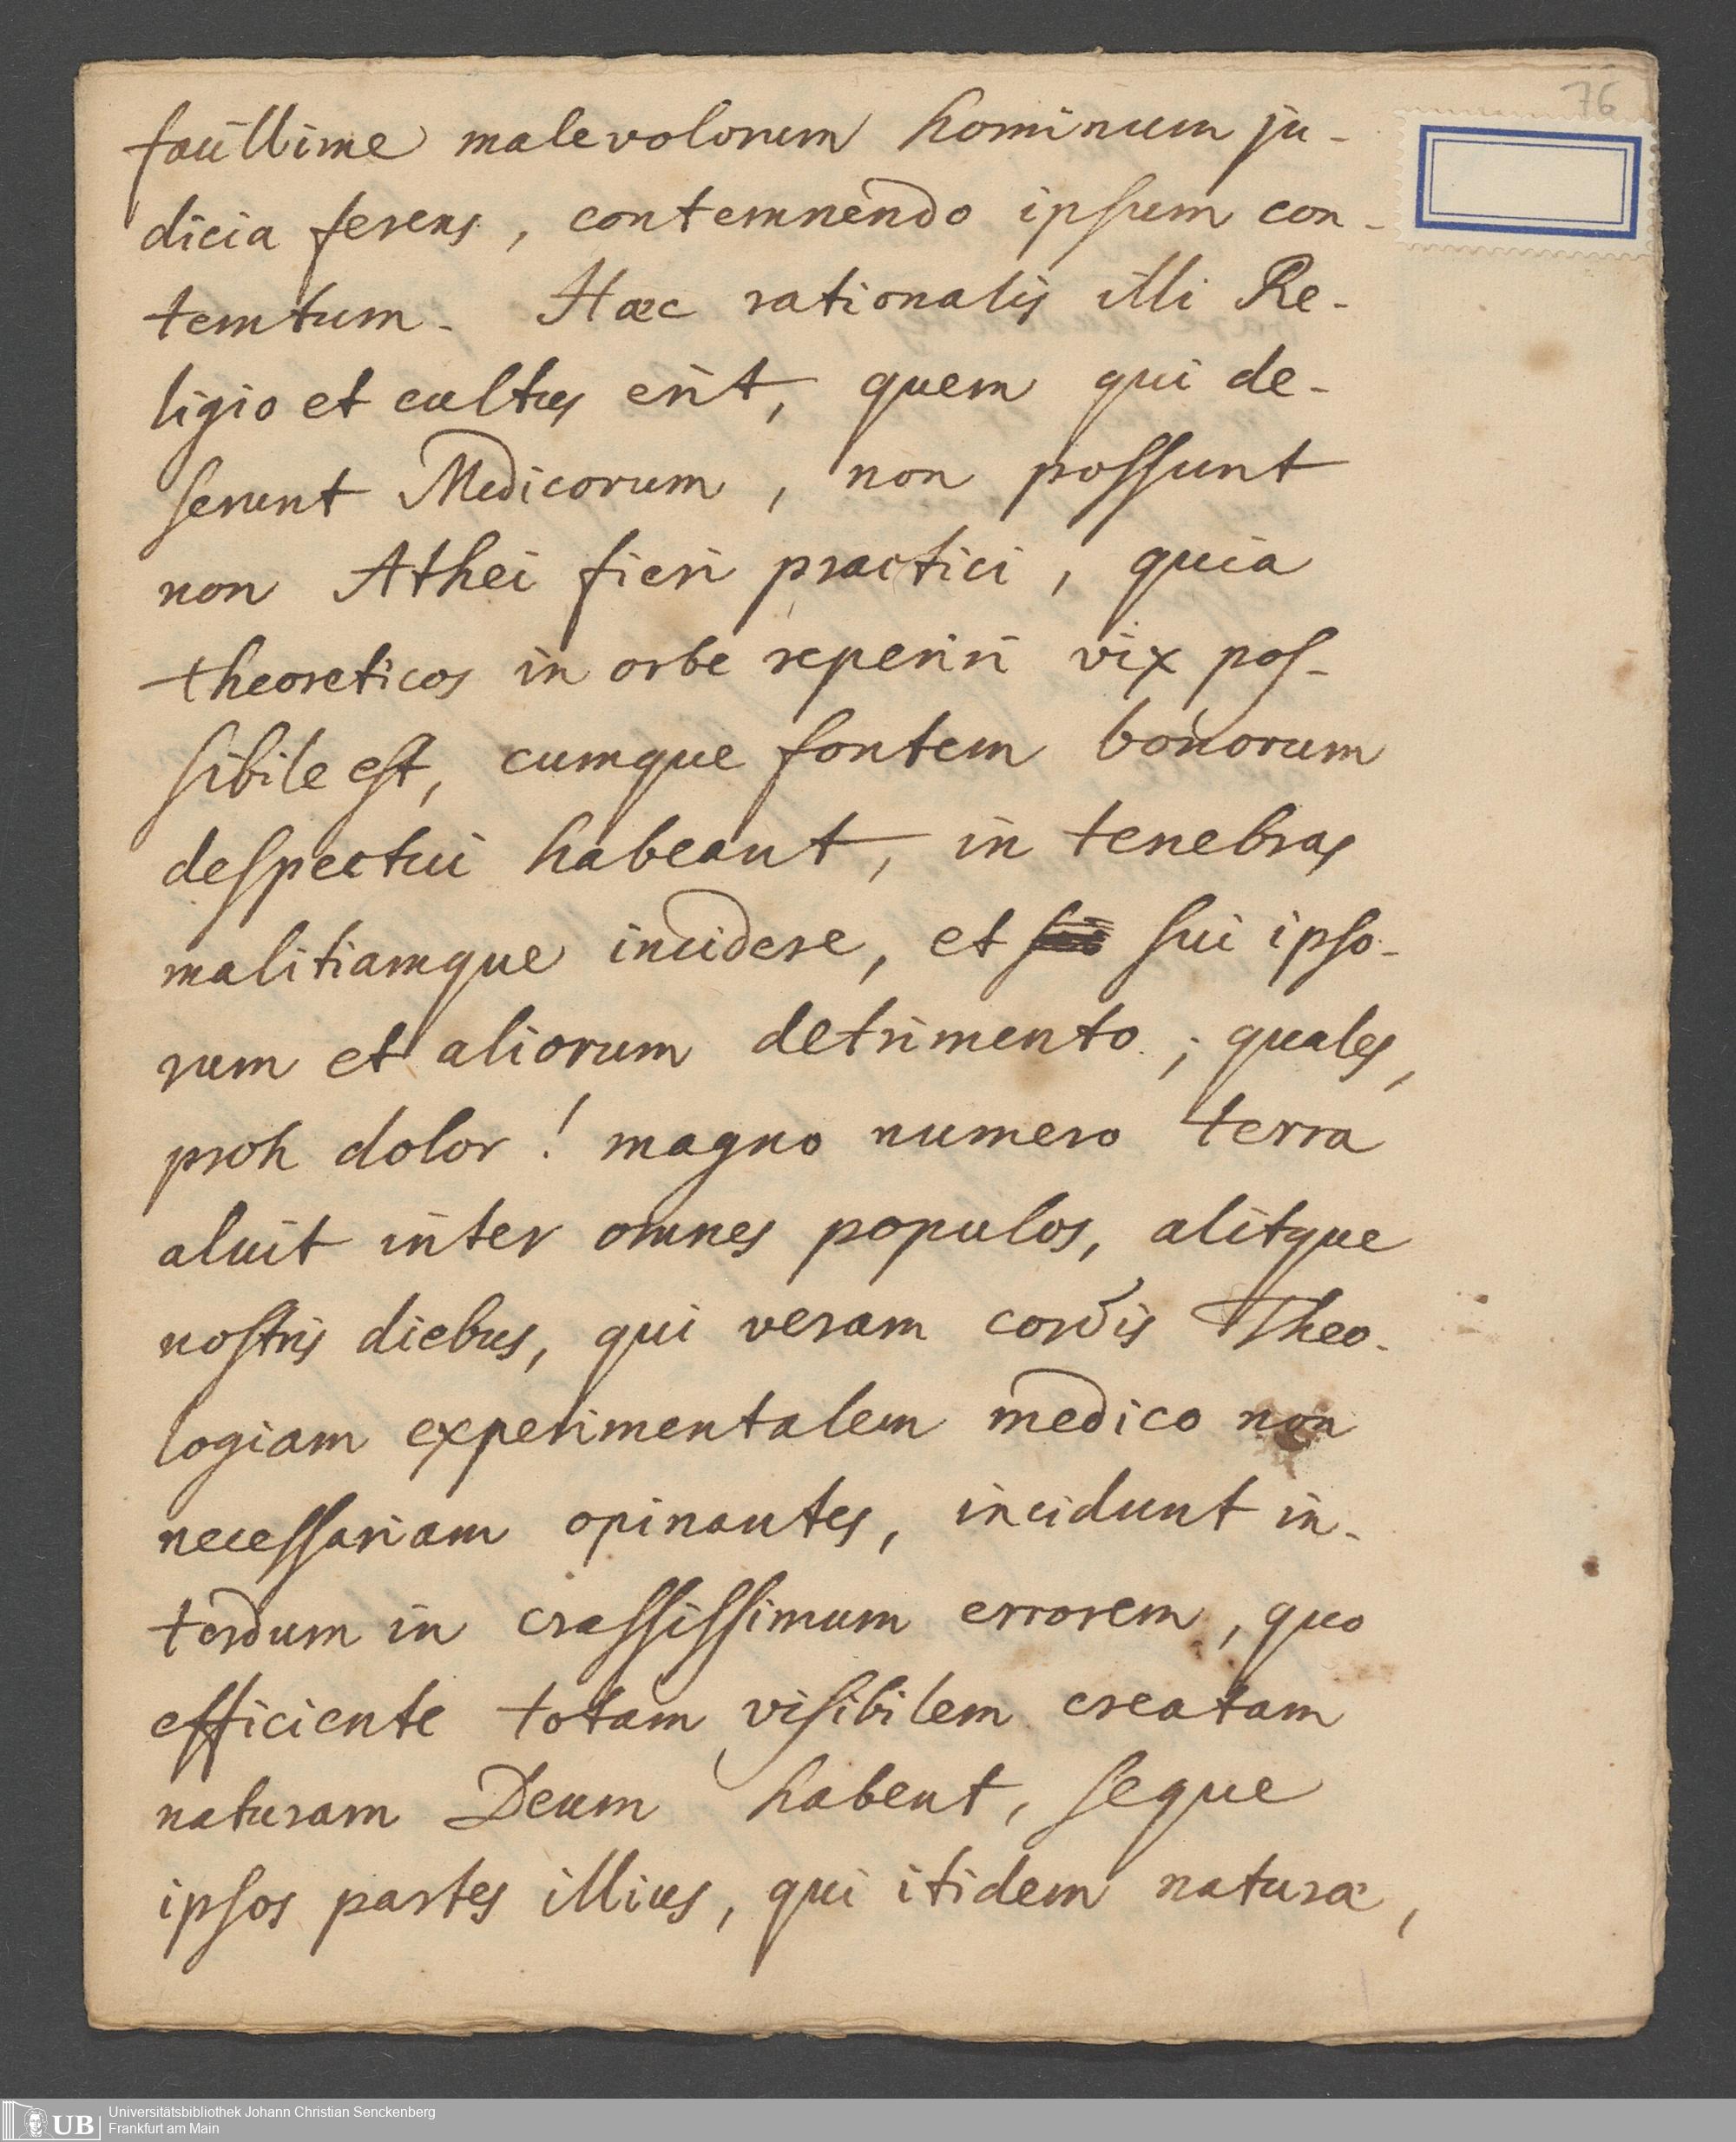 76
facillime malevolorum hominum ju-
dicia ferens, contemnendo ipsum con-
temtum. Haec rationalis illi Re-
ligio et cultus erit, quem qui de-
serunt Medicorum, non possunt
non Athei fieri practici, quia
theoreticos in orbe reperiri vix pos-
sibile est, cumque fontem bonorum
despectui habeant, in tenebras
malitiamque incidere, et sui ipso-
rum et aliorum detrimento; quales,
proh dolor! magno numero terra
aluit inter omnes populos, alitque
nostris diebus, qui veram cordis Theo-
logiam experimentalem medico non
necessariam opinantes, incidunt in-
terdum in crassissimum errorem, quo
efficiente totam visibilem creatam
naturam Deum habent, seque
ipsos partes illius, qui itidem naturæ,
UB
Universitätsbibliothek Johann Christian Senckenberg
Frankfurt am Main